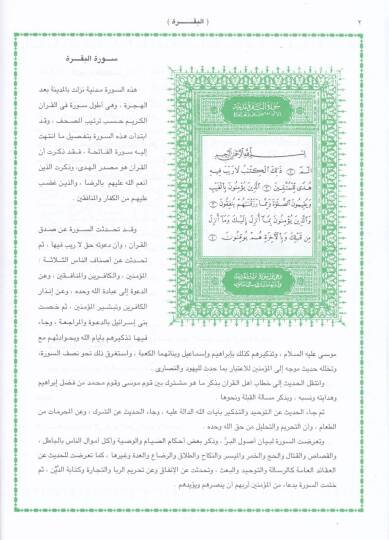 ٢
( البقـــرة )
ســورة البقــرة
هذه السورة مدنية نزلت بالمدينة بعد
الهجرة ، وهى أطول سورة فى القران
الكريم حسب ترتيب الصحف ، وقد
ابتدأت هذه السورة بتفصيل ما انتهت
إليه سورة الفاتحة ، فقد ذكرت أن
القران هو مصدر الهدى، وذكرت الذين
أنعم الله عليهم بالرضا ، والذين غضب
عليهم من الكفار والمنافقين .
وقد تحدثت السورة عن صدق
القران ، وان دعوته حق لا ريب فيها ، ثم
تحدثت عن أصناف الناس الثلاثة :
المؤمنين ، والكافرين والمنافقين ، وعن
الدعوة إلى عبادة الله وحده ، وعن إنذار
الكافرين وتبشير المؤمنين ، ثم خصت
بنى إسرائيل بالدعوة والمراجعة ، وجاء
فيها تذكيرهم بأيام الله وبحوادثهم مع
بسم الله الرحمن الرحيم
الٓمٓ ١ ذَٰلِكَ ٱلْكِتَٰبُ لَا رَيْبَ فِيهِ
هُدًى لِّلْمُتَّقِينَ ٢ ٱلَّذِينَ يُؤْمِنُونَ بِٱلْغَيْبِ
وَيُقِيمُونَ ٱلصَّلَوٰةَ وَمِمَّا رَزَقْنَٰهُمْ يُنفِقُونَ ٣
وَٱلَّذِينَ يُؤْمِنُونَ بِمَآ أُنزِلَ إِلَيْكَ وَمَآ أُنزِلَ
مِن قَبْلِكَ وَبِٱلْءَاخِرَةِ هُمْ يُوقِنُونَ ٤
موسى عليه السلام ، وتذكيرهم كذلك بإبراهيم وإسماعيل وبنائهما الكعبة ، واستغرق ذلك نحو نصف السورة،
وتخلله حديث موجه إلى المؤمنين للاعتبار بما حدث لليهود والنصارى .
وانتقل الحديث إلى خطاب أهل القران بذكر ما هو مشترك بين قوم موسى وقوم محمد من فضل إبراهيم
وهدايته ونسبه ، وبذكر مسألة القبلة ونحوها .
ثم جاء الحديث عن التوحيد والتذكير بآيات الله الدالة عليه ، وجاء الحديث عن الشرك ، وعن المحرمات من
الطعام ، وان التحريم والتحليل من حق الله وحده .
وتعرضت السورة لبيان أصول البرّ ، وذكر بعض أحكام الصيام والوصية وأكل أموال الناس بالباطل ،
والقصاص والقتال والحج والخمر والميسر والنكاح والطلاق والرضاع والعدة وغيرها ، كما تعرضت للحديث عن
العقائد العامة كالرسالة والتوحيد والبعث ، وتحدثت عن الإنفاق وعن تحريم الربا والتجارة وكتابة الدَّيْن ، ثم
ختمت السورة بدعاء، من المؤمنين لربهم أن ينصرهم ويؤيدهم .